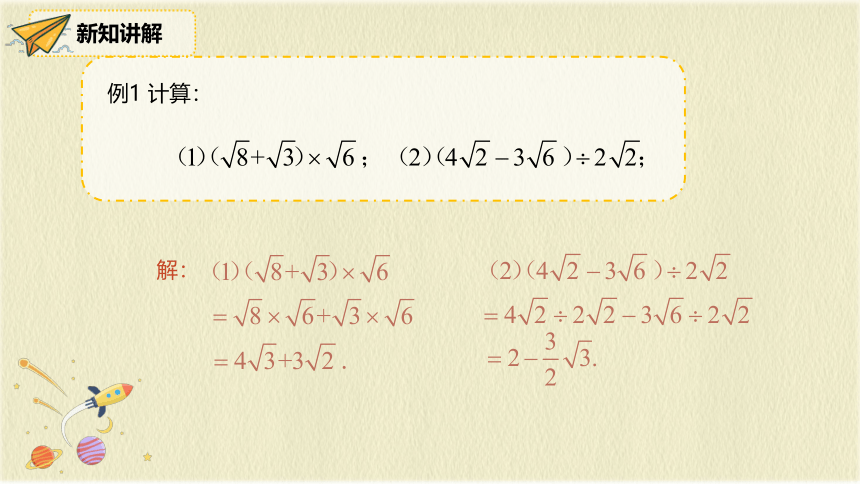 新知讲解
例1 计算：
(1)(√8+√3)×√6； (2)(4√2−3√6)÷2√2；
解： (1)(√8+√3)×√6
=√8×√6+√3×√6
=4√3+3√2.
(2)(4√2−3√6)÷2√2
=4√2÷2√2−3√6÷2√2
=2−3/2√3.